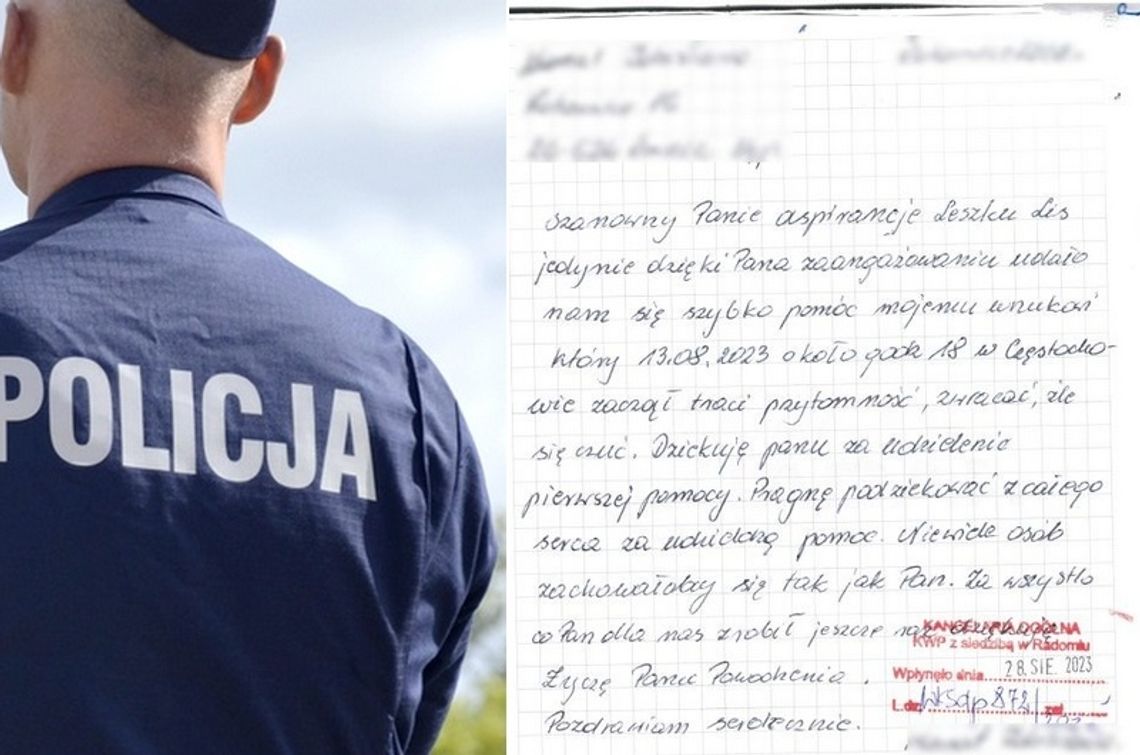 POLICJA
Szanowny Panie aspirancie Leszku Lis
jedynie dzięki Pana zaangażowaniu udało
nam się szybko pomóc mojemu wnukowi
który 13.08.2023 około godz 18 w Częstocho-
wie zaczął traci przytomność, zwracać, źle
się czuć. Dziękuję panu za udzielenie
pierwszej pomocy. Pragnę podziękować z całego
serca za udzieloną pomoc. Niewiele osób
zachowałoby się tak jak Pan. Za wszystko
co Pan dla nas zrobił jeszcze raz dziękuję
KANCELARIA OGÓLNA
KWP z siedzibą w Radomiu
Wpłynęło dnia 28. SIE. 2023
Życzę Panu Powodzenia.
L.dz. zał.
Pozdrawiam serdecznie.